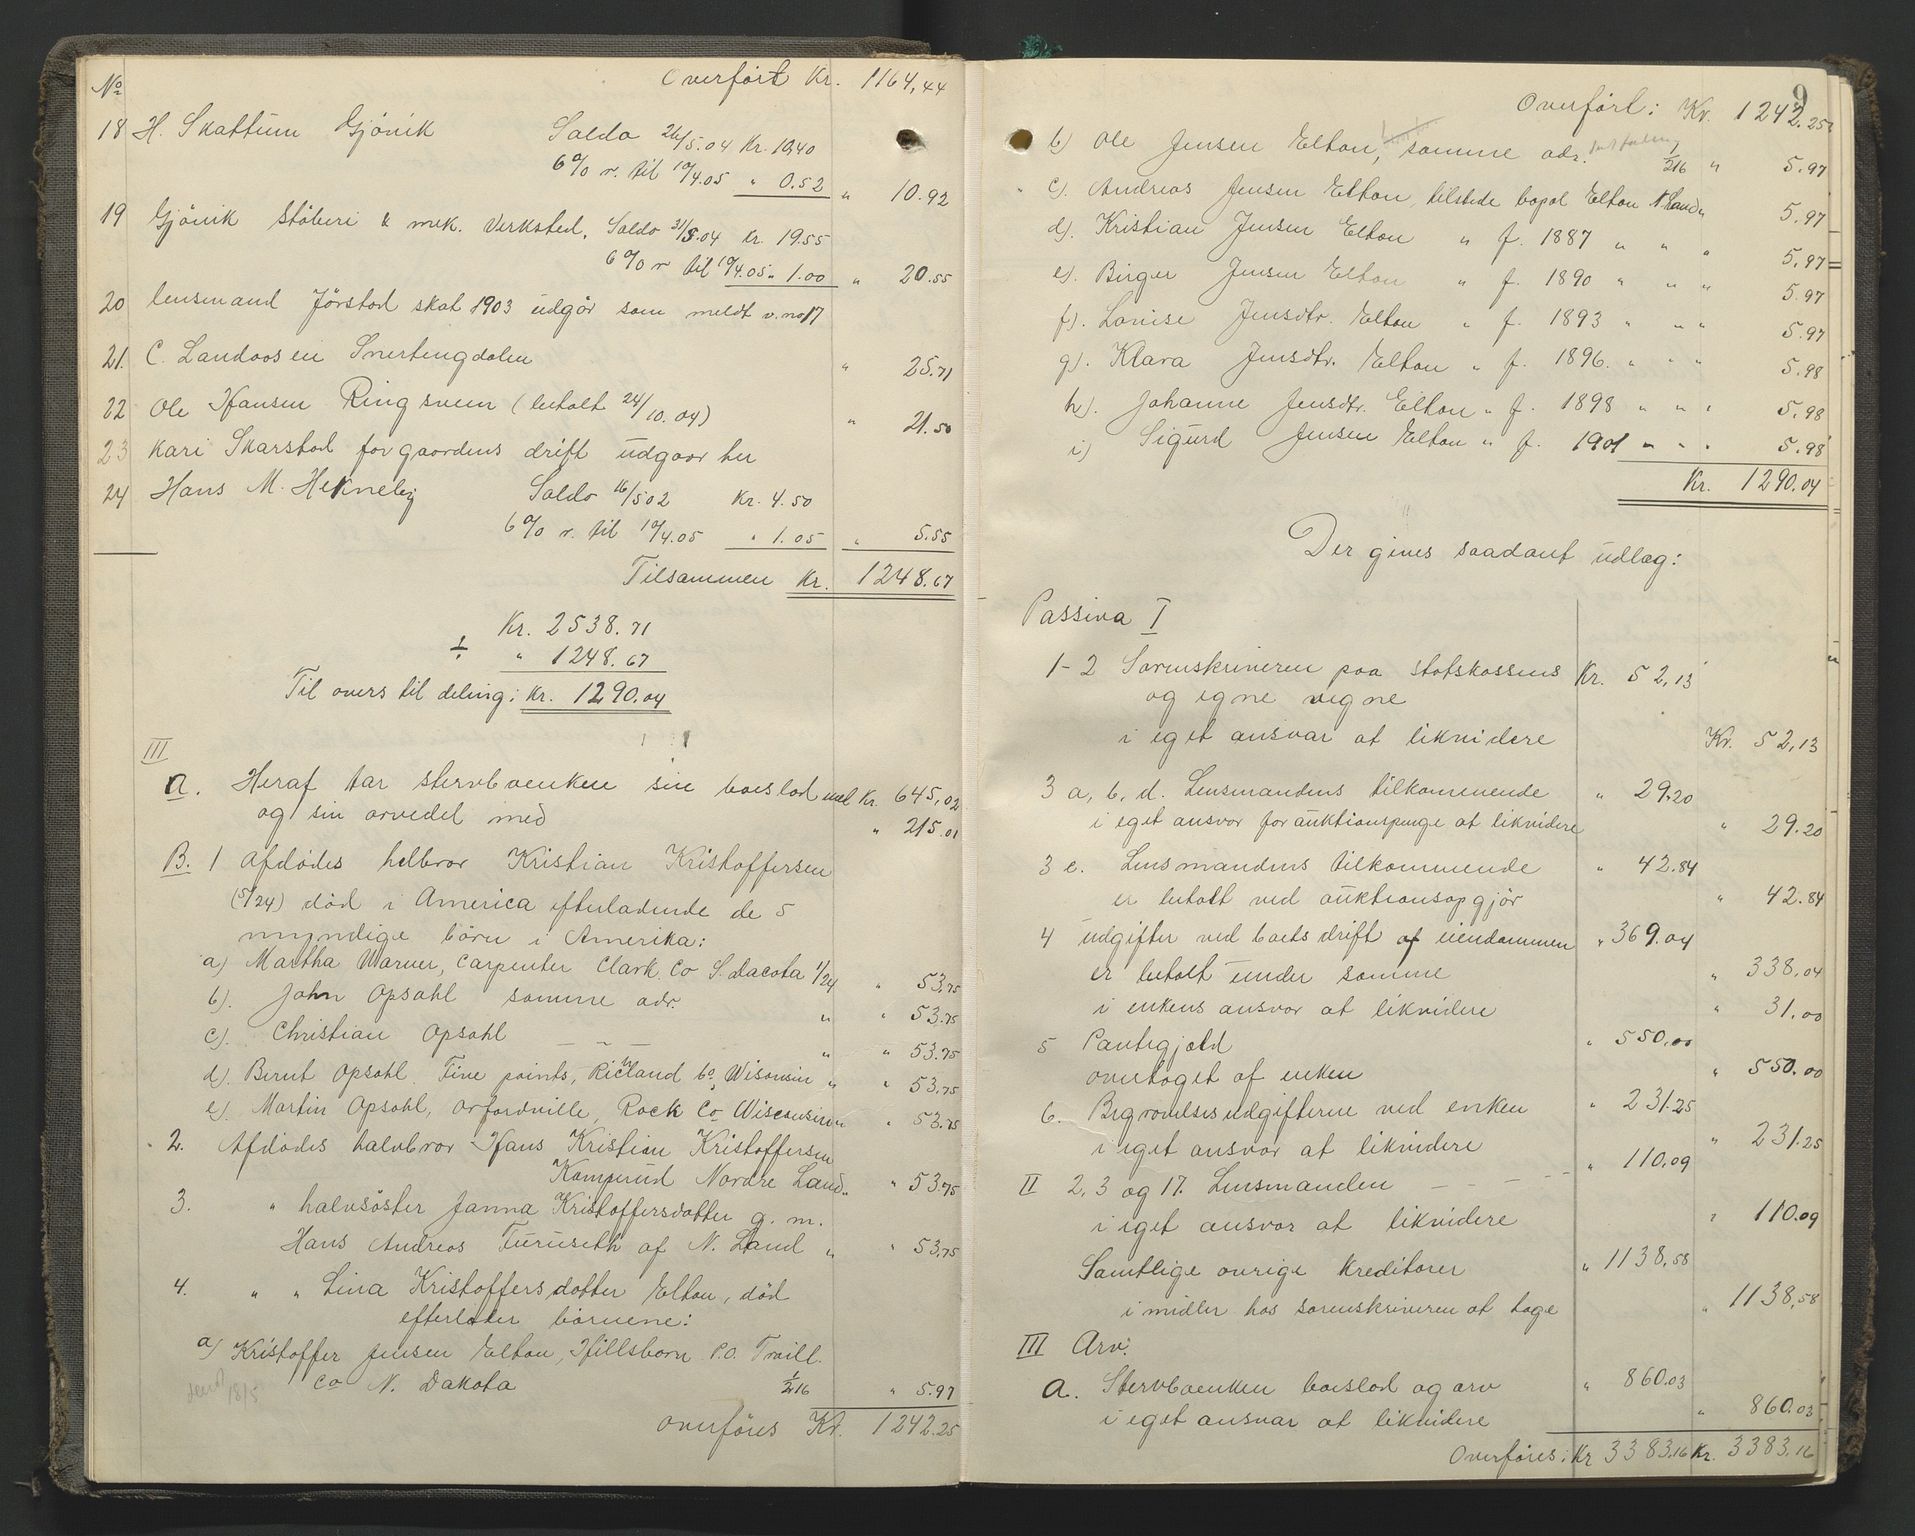 No Overført Kr. 1164,44
18 H. Skattum Gjövik Saldo 26/5.04 Kr. 10,40
6% r. til 10/4.05 " 0.52 " 10.92
19 Gjövik Stöberi & mek. Verksted. Saldo 31/5.04 Kr. 19.55
6% r til 10/4.05 " 1.00 " 20.55
20 lensmand Jörstad skat 1903 udgår som meldt v. no 17
21. C. Landaasen Snertingdalen " 25.71
22 Ole Hansen Ringsveen (betalt 24/10.04) " 21.50
23 Kari Skarstad for gaardens drift udgaar her
24 Hans M. Hekneby Saldo 16/5 02 Kr. 4.50
6% r. til 10/4.05 " 1.05 " 5.55
Tilsammen Kr. 1248.67
Kr. 2538.71
÷ " 1248.67
Til overs til deling: Kr. 1290.04
III
A. Heraf tar stervboenken sin boeslod med Kr. 645,02
og sin arvedel med " 215.01
B. 1 Afdödes helbror Kristian Kristoffersen
(5/24) död i America efterladende de 5
myndige börn i Amerika:
a) Martha Warner, Carpenter Clark. Co S. Dacota 1/24 " 53.75
b). John Opsahl samme adr. " " 53.75
c). Christian Opsahl — — — " " 53.75
d). Bernt Opsahl. Five points, Richland Co, Wisonsin " " 53.75
e). Martin Opsahl, Orfordville, Rock Co Wisconsin " " 53.75
2. Afdödes halvbror Hans Kristian Kristoffersen
Kamperud Nordre Land " " 53.75
3. " halvsöster Janna Kristoffersdatter g. m.
Hans Andreas Furuseth af N. Land " " 53.75
4. " " Lina Kristoffersdatter Elton, död
efterlater börnene:
a) Kristoffer Jensen Elton, Hillsborn P.O. Traill.
Co N. Dakota 1/216 " 5.97
18/5
overföres Kr. 1242.25
9
Overført: Kr. 1242.25
b) Ole Jensen Elton, samme adr. 1/216 " 5.97
c). Andreas Jensen Elton, tilstede bopæl Elton N Land " 5.97
d). Kristian Jensen Elton " f. 1887 " " " 5.97
e). Birger Jensen Elton " f. 1890 " " " 5.97
f). Lovise Jensdtr. Elton " f. 1893 " " " 5.97
g). Klara Jensdtr. Elton " f. 1896. " " " 5.98
h). Johanne Jensdtr. Elton " f. 1898 " " " 5.98
i) Sigurd Jensen Elton " f. 1901 " " " 5.98
Kr. 1290.04
Der gives saadant udlæg:
Passiva I
1-2 Sorenskriveren paa statskassens Kr. 52,13
og egne vegne
i eget ansvar at likvidere Kr. 52,13
3 a, b, d. Lensmandens tilkommende " 29.20
i eget ansvar for auktionspenge at likvidere " 29.20
3 c. Lensmandens tilkommende " 42.84
er betalt ved auktionsopgjör " 42.84
4 udgifter ved boets drift af eiendommen " 369.04
er betalt under samme " 338.04
i enkens ansvar at likvidere " 31.00
5 Pantegjæld " 550.00
overtaget af enken " 550.00
6. Begravelsesudgifterne ved enken " 231.25
i eget ansvar at likvidere " 231.25
II 2, 3 og 17. Lensmanden — — — — " 110.09
i eget ansvar at likvidere " 110.09
Samtlige övrige kreditorer " 1138.58
i midler hos sorenskriveren at tage " 1138,58
III Arv:
A. Stervboenken boeslod og arv " 860.03
i eget ansvar at likvidere " 860.03
Overføres: Kr 3383.16 Kr. 3383.16